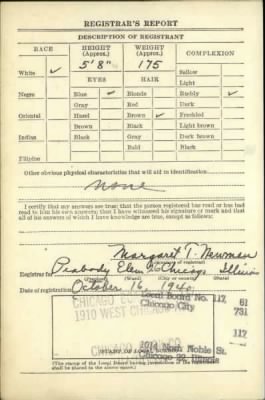 REGISTRAR'S REPORT
DESCRIPTION OF REGISTRANT
RACE
HEIGHT
(Approx.)
WEIGHT
(Approx.)
COMPLEXION
White ✓
5' 8"
175
Sallow
Light
EYES
HAIR
Negro
Blue ✓
Blonde
Ruddy ✓
Gray
Red
Dark
Oriental
Hazel
Brown ✓
Freckled
Brown
Black
Light brown
Indian
Black
Gray
Dark brown
Bald
Black
Filipino
Other obvious physical characteristics that will aid in identification
None
I certify that my answers are true; that the person registered has read or has had
read to him his own answers; that I have witnessed his signature or mark and that
all of his answers of which I have knowledge are true, except as follows:
Margaret T. Newman
(Signature of registrar)
Registrar for Peabody Elem Chicago Illinois
Date of registration October 16, 1940
Local Board No. 117
Chicago City
61
731
117
CHICAGO
1910 WEST
2014 North Noble St.
Chicago 22, Illinois
(STAMP OF LOCAL BOARD)
(The stamp of the Local Board having jurisdiction of the registrant
shall be placed in the above space.)